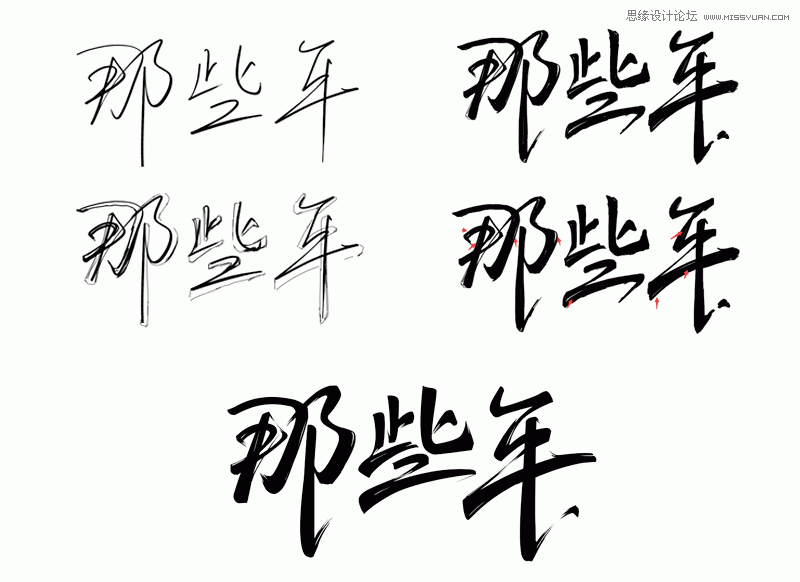 思缘设计论坛 WWW.MISSYUAN.COM
那些年 那些年
那些年 那些年
那些年